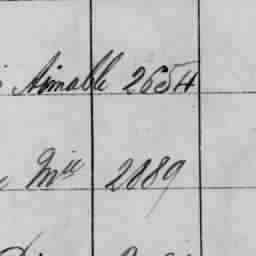 Aimable 2654
Mie 2089